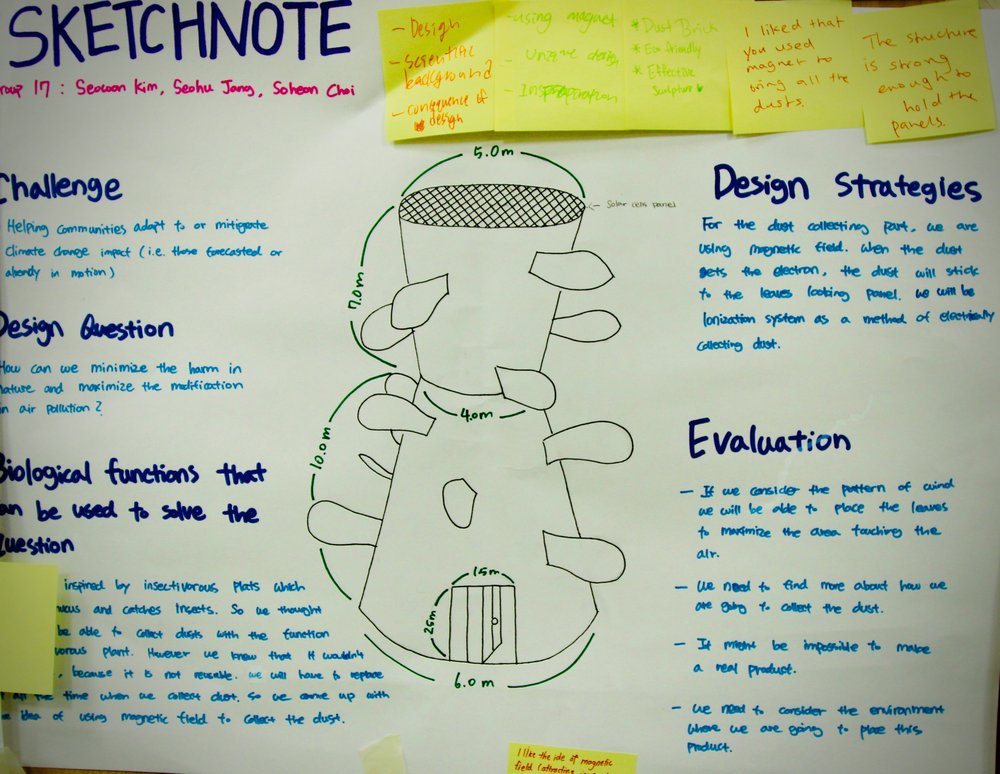 SKETCHNOTE
roup 17 : Seowon Kim, Seohu Jang, Soheon Choi
- Design
- Scientific background
- consequence of design
- using magnet
- unique design
- Inspiration
* Dust Brick
* Eco friendly
* Effective
Sculpture
I liked that
you used
magnet to
bring all the
dusts.
The structure
is strong
enough to
hold the
panels.
Challenge
Helping communities adapt to or mitigate
climate change impact (i.e. those forecasted or
already in motion)
Design Question
How can we minimize the harm in
nature and maximize the modification
in air pollution?
Biological functions that
can be used to solve the
Question
inspired by insectivorous plats which
and catches insects. So we thought
be able to collect dusts with the function
vorous plant. However we knew that it wouldn't
, because it is not reusable. we will have to replace
all the time when we collect dust. So we came up with
idea of using magnetic field to collect the dust.
5.0m
← Solar cells panel
7.0m
4.0m
10.0m
1.5m
2.5m
6.0m
Design Strategies
For the dust collecting part, we are
using magnetic field. When the dust
gets the electron, the dust will stick
to the leaves looking panel. we will be
Ionization system as a method of electrically
collecting dust.
Evaluation
- If we consider the pattern of wind
we will be able to place the leaves
to maximize the area touching the
air.
- We need to find more about how we
are going to collect the dust.
- It might be impossible to make
a real product.
- We need to consider the environment
where we are going to place this
product.
I like the ide of magnetic
field (attracting